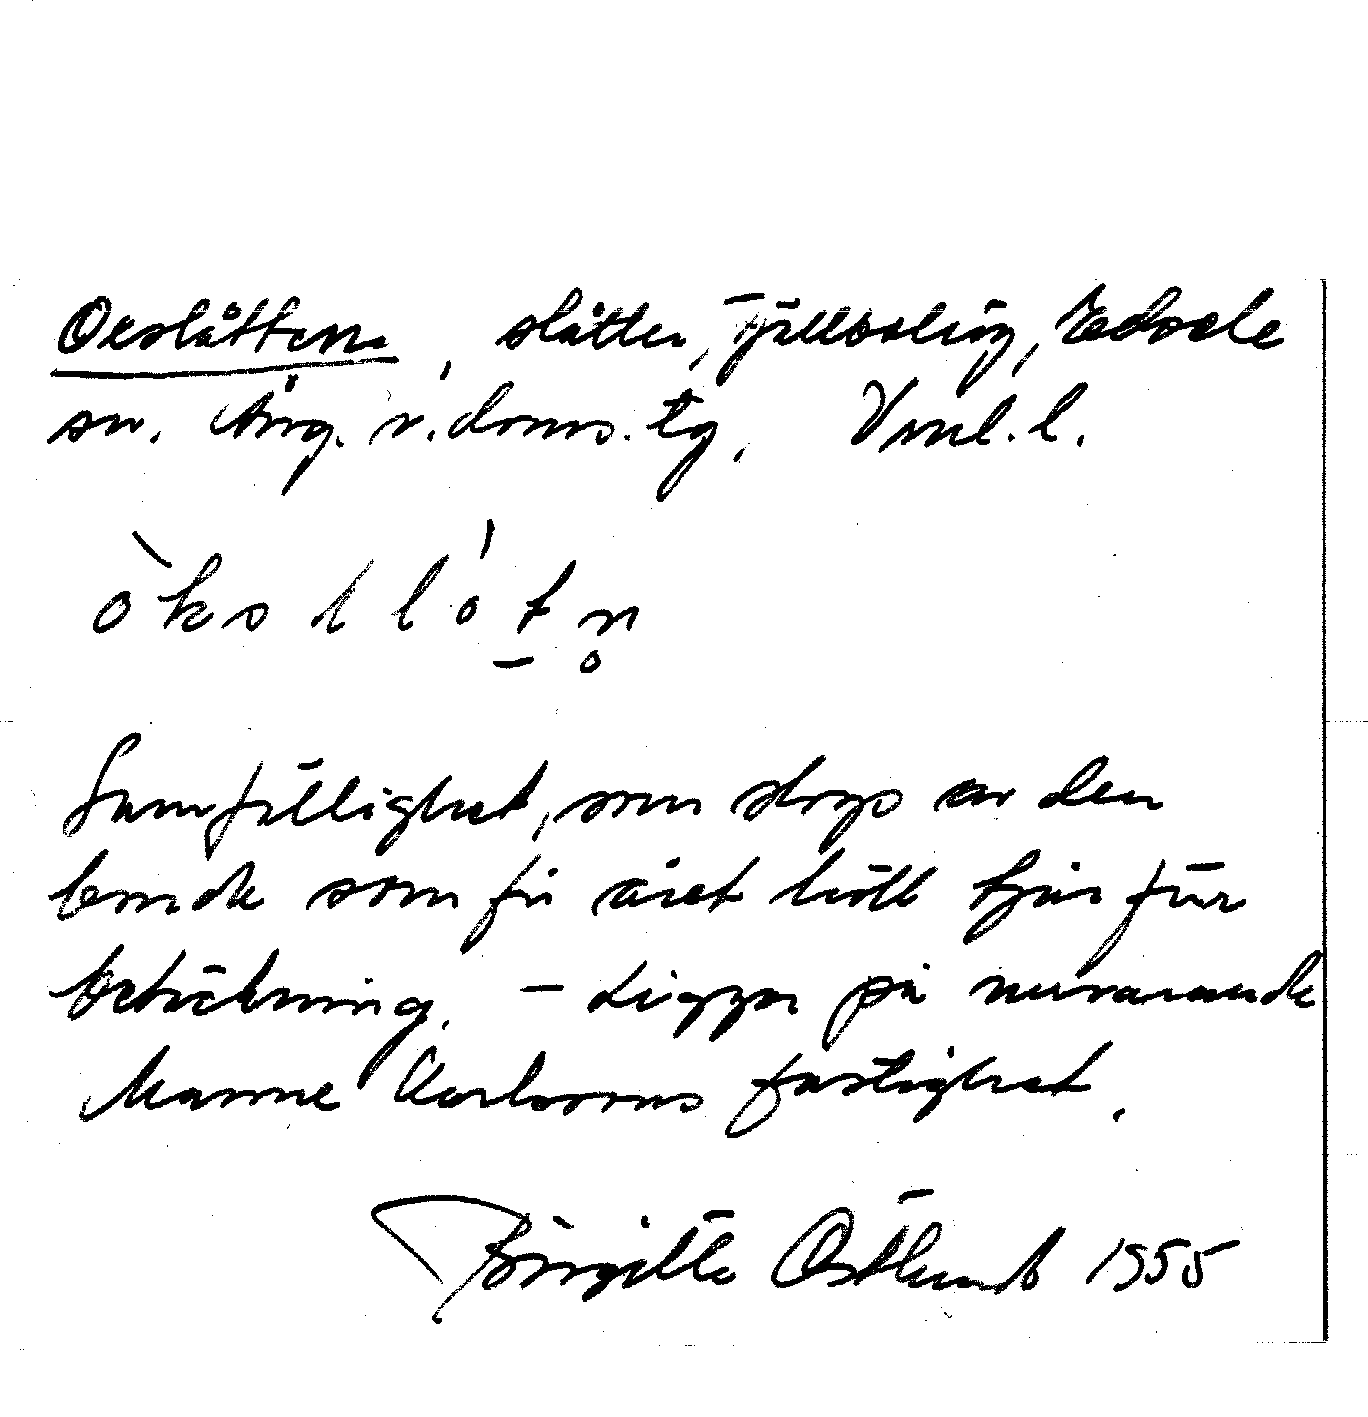 Oxslåtten, slåtter, Fjällboläg, Edsele
sn. Ång. v. doms. tg. Vml. l.
òksllótn̥
Samfällighet, som slogs av den
bonde som för året höll tjur för
betäckning. – Ligger på nuvarande
Manne Karlssons fastighet.
Birgitta Östlund 1955